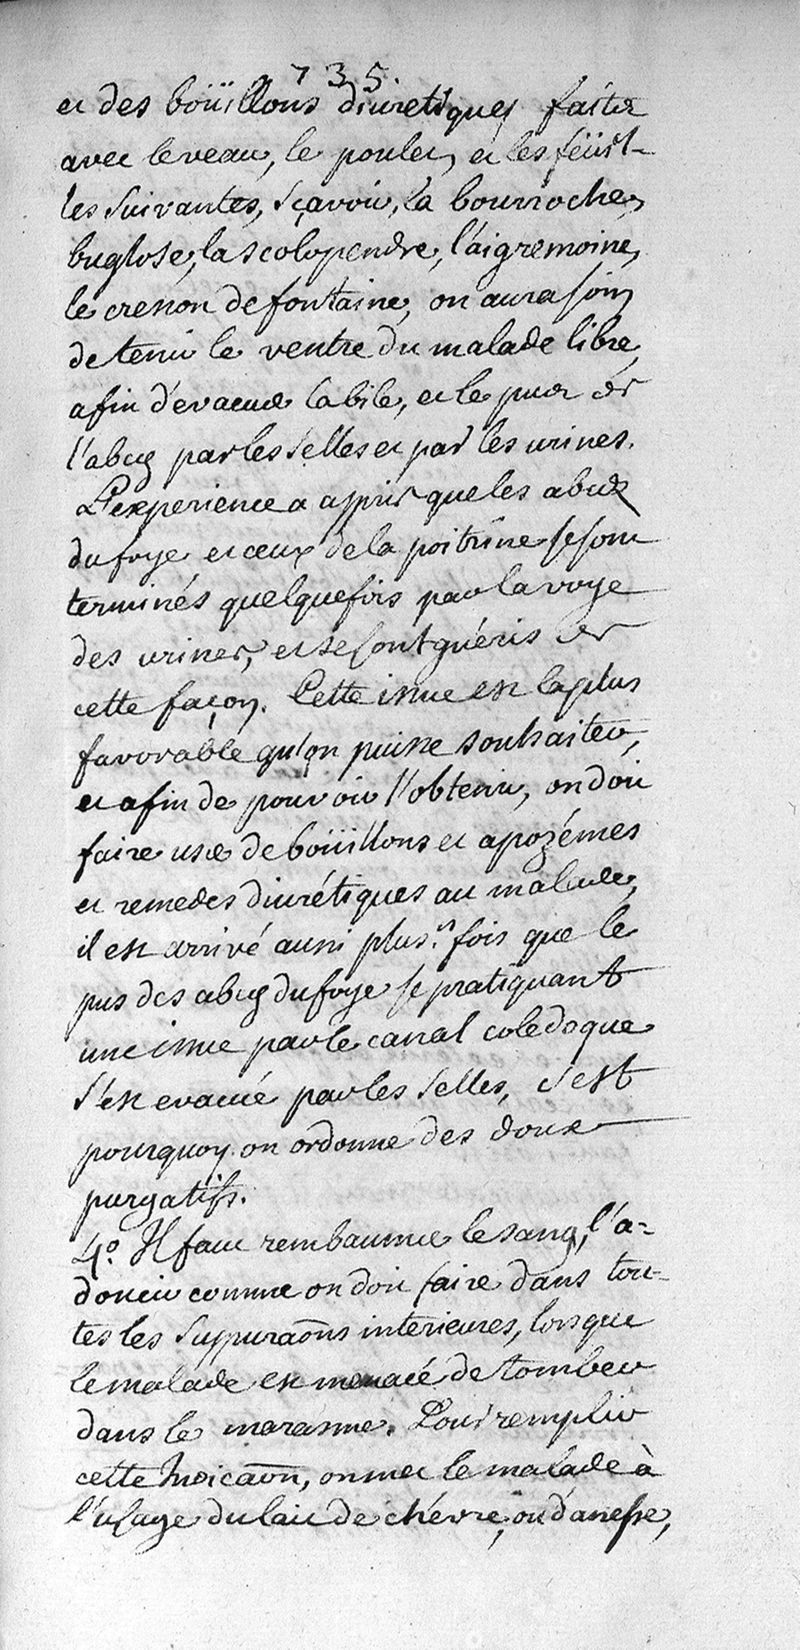 735
et des boüillons diuretiques faits
avec le veau, le poulet, et les feüil-
les suivantes, sçavoir, la bourroche,
buglose, la scolopendre, l'aigremoine,
le cresson de fontaine, on aura soin
de tenir le ventre du malade libre,
afin d'evacuer la bile, et le pus de
l'abcez par les selles et par les urines.
L'experience a appris que les abcez
du foye et ceux de la poitrine se sont
terminés quelquefois par la voye
des urines, et se sont guéris de
cette façon. Cette issue est la plus
favorable qu'on puisse souhaiter,
et afin de pouvoir l'obtenir, on doit
faire user de boüillons et apozémes
et remedes diurétiques au malade,
il est arrivé aussi plus.rs fois que le
pus des abcez du foye se pratiquant
une issue par le canal coledoque
s'est evacué par les selles, c'est
pourquoy on ordonne des doux
purgatifs.
4.o Il faut rembaumer le sang, l'a-
doucir comme on doit faire dans tou-
tes les suppuraõns interieures, lorsque
le malade est menacé de tomber
dans le marasme. Pour remplir
cette Indicaõn, on met le malade à
l'usage du lait de chévre, ou d'anesse,